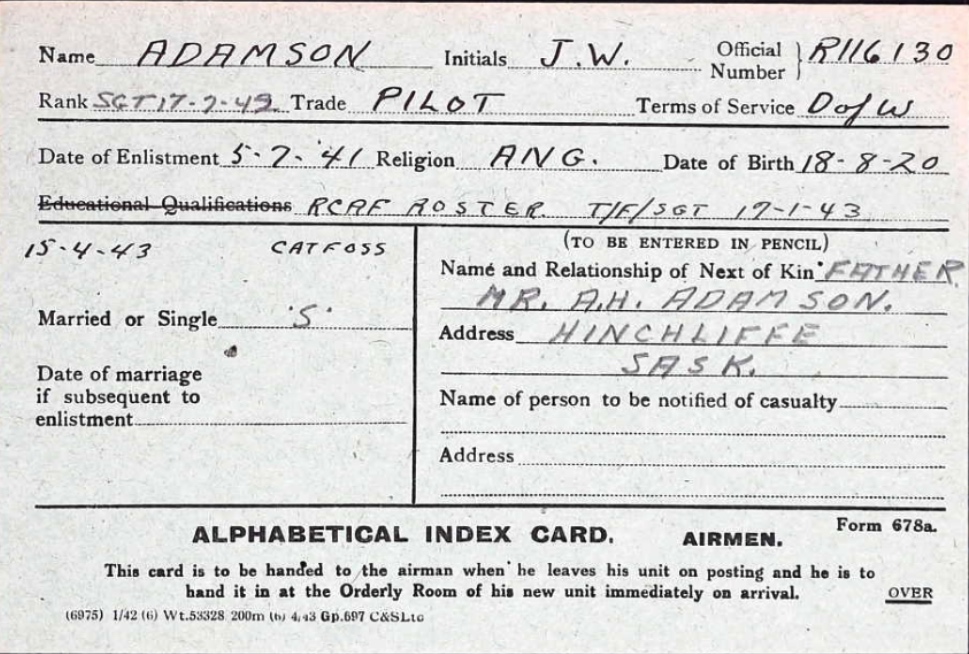 Name ADAMSON Initials J.W. Official Number } R116130
Rank SGT 17-7-42 Trade PILOT Terms of Service D of W
Date of Enlistment 5-7-'41 Religion ANG. Date of Birth 18-8-20
Educational Qualifications RCAF ROSTER T/F/SGT 17-1-43
15-4-43 CATFOSS
(TO BE ENTERED IN PENCIL)
Name and Relationship of Next of Kin FATHER.
MR. A.H. ADAMSON.
Married or Single 'S'
Address HINCHLIFFE
SASK.
Date of marriage
if subsequent to
enlistment
Name of person to be notified of casualty
Address
ALPHABETICAL INDEX CARD. AIRMEN. Form 678a.
This card is to be handed to the airman when he leaves his unit on posting and he is to
hand it in at the Orderly Room of his new unit immediately on arrival. OVER
(6975) 1/42 (6) Wt.53328 200m (6) 4/43 Gp.697 C&SLtd